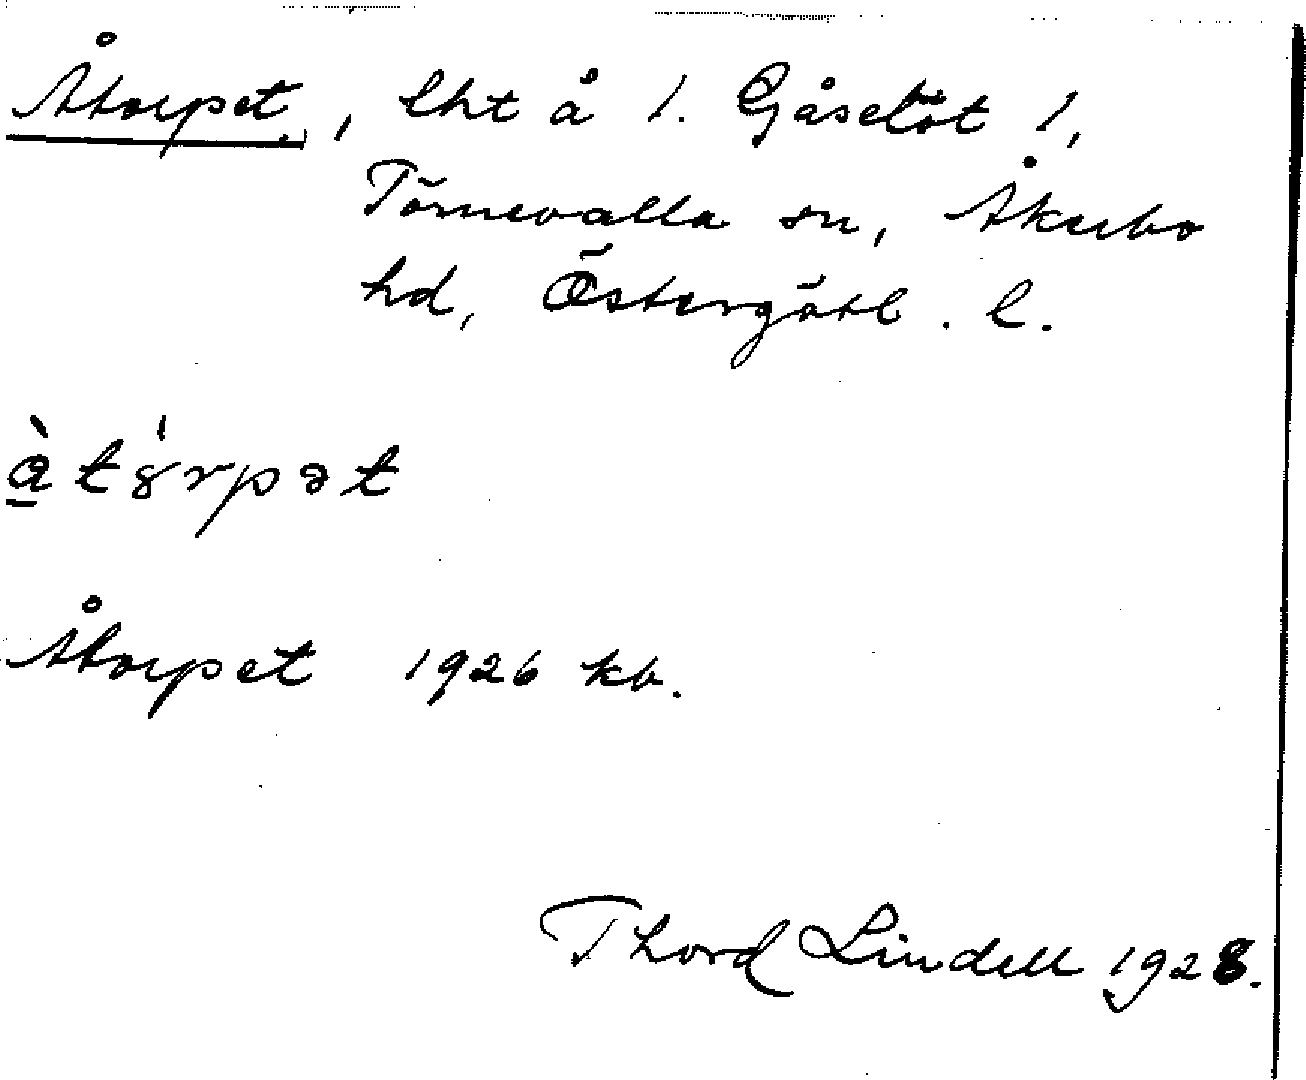 Åtorpet, lht å 1. Gåsetöt 1,
Törnevalla sn, Åkerbo
hd, Östergötl. l.
å̀tórpət
Åtorpet 1926 kb.
Thord Lindell 1928.